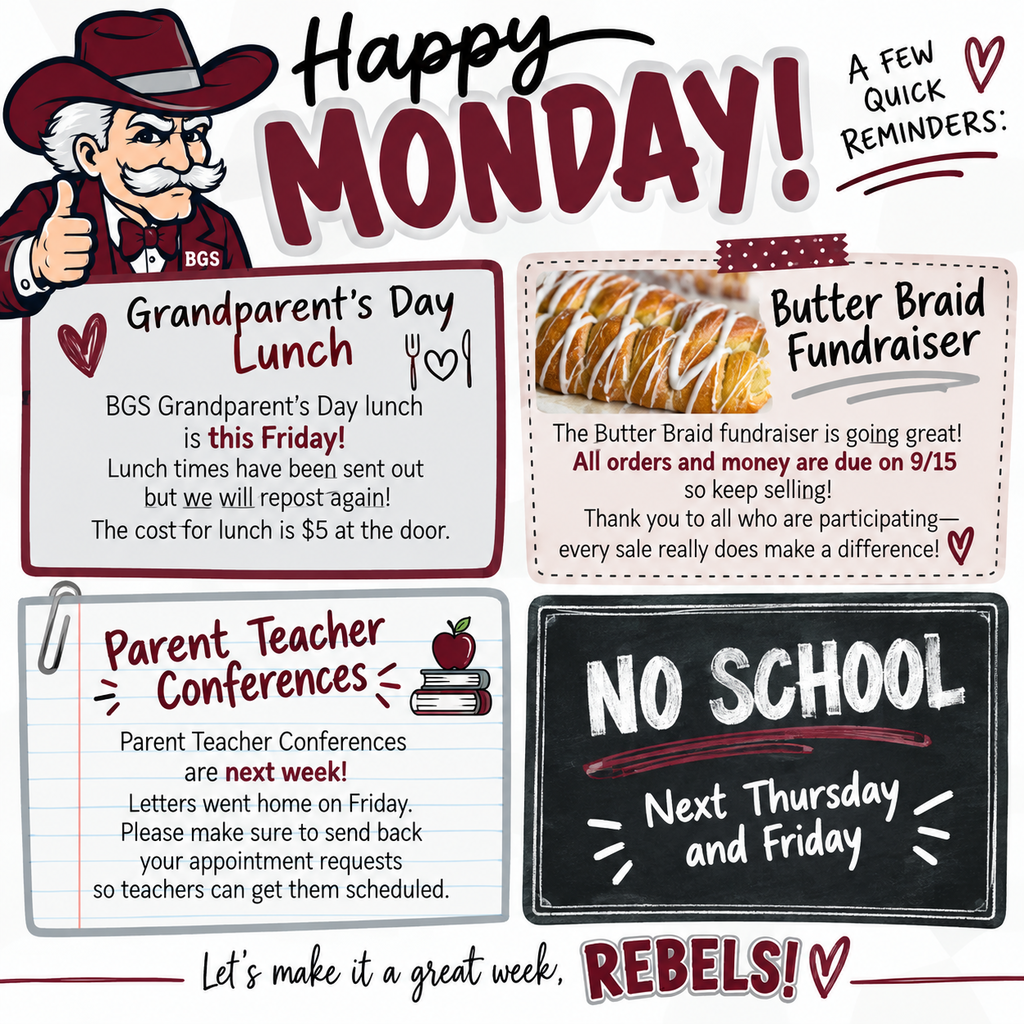 Happy
MONDAY!
A FEW
QUICK
REMINDERS:
BGS
Grandparent's Day
Lunch
BGS Grandparent's Day lunch
is this Friday!
Lunch times have been sent out
but we will repost again!
The cost for lunch is $5 at the door.
Butter Braid
Fundraiser
The Butter Braid fundraiser is going great!
All orders and money are due on 9/15
so keep selling!
Thank you to all who are participating—
every sale really does make a difference!
Parent Teacher
Conferences
Parent Teacher Conferences
are next week!
Letters went home on Friday.
Please make sure to send back
your appointment requests
so teachers can get them scheduled.
NO SCHOOL
Next Thursday
and Friday
Let's make it a great week, REBELS!